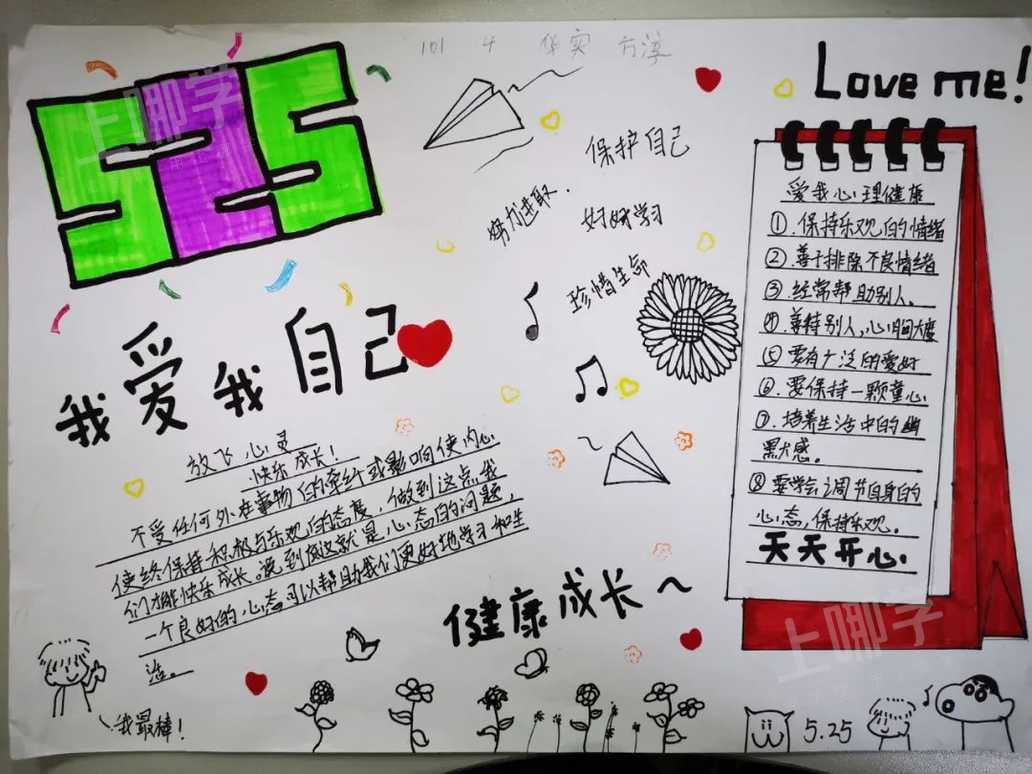 101 4 华实 方淳
525
Love me!
保护自己
努力进取.
好好学习
珍惜生命
我爱我自己
放飞心灵
快乐成长!
不受任何外在事物的牵绊或影响使内心
使终保持积极与乐观的态度,做到这点我
们才能快乐成长。说到底这就是心态的问题,
一个良好的心态可以帮助我们更好地学习和生
活。
我最棒!
健康成长~
爱我心理健康
①.保持乐观的情绪
②.善于排除不良情绪
③.经常帮助别人。
④.善待别人,心胸大度
⑤要有广泛的爱好
⑥.要保持一颗童心
⑦.培养生活中的幽
默感。
⑧要学会调节自身的
心态,保持乐观。
天天开心
5.25
上哪学
上哪学